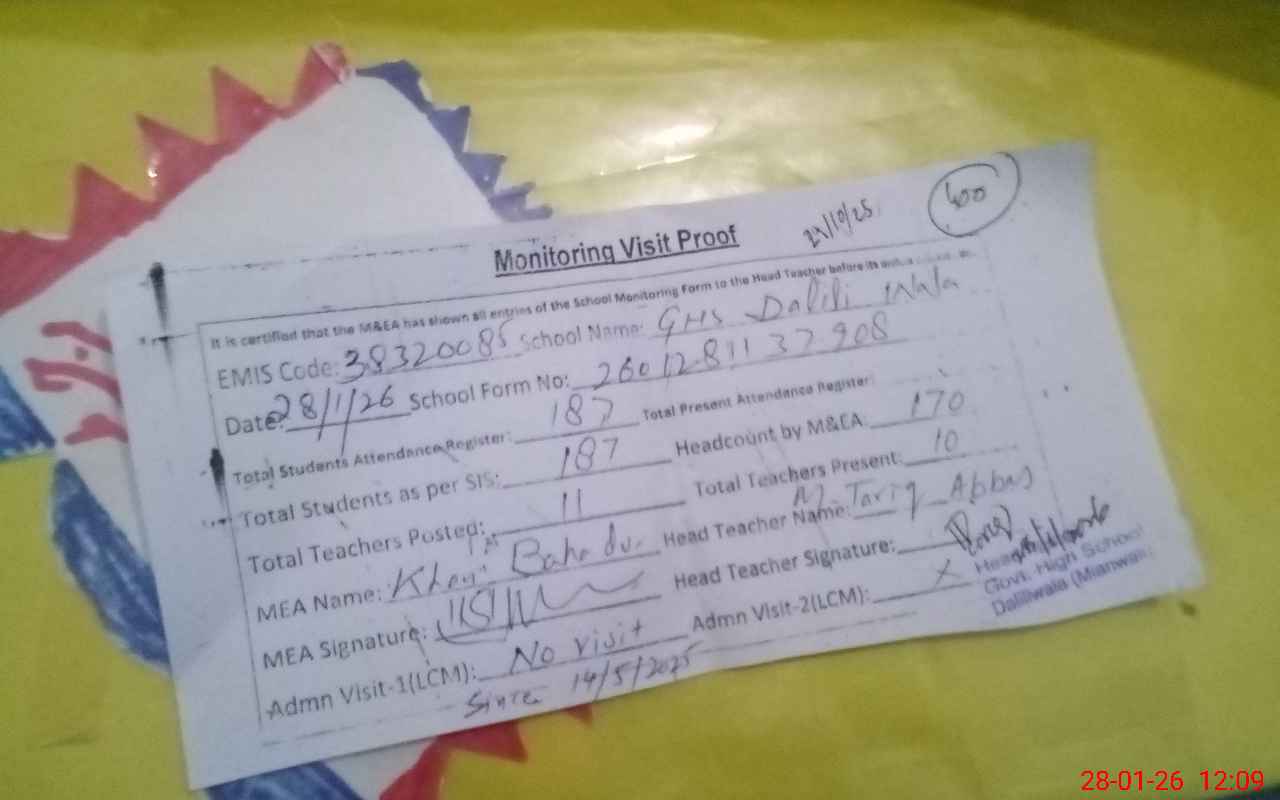 400
Monitoring Visit Proof
It is certified that the M&EA has shown all entries of the School Monitoring Form to the Head Teacher before its
EMIS Code: 38320085 School Name: GHS Dalili Wala
Date: 28/1/26 School Form No: 26012811 37 908
Total Students Attendance Register: 187 Total Present Attendance Register:
Total Students as per SIS: 187 Headcount by M&EA: 170
Total Teachers Posted: 11 Total Teachers Present: 10
MEA Name: Bahadur Head Teacher Name: M. Tariq Abbas
MEA Signature: Head Teacher Signature:
Admn Visit-1(LCM): No visit Admn Visit-2(LCM): X
Since 14/5/2025
Govt. High School
Daliliwala (Mianwali)
28-01-26 12:09